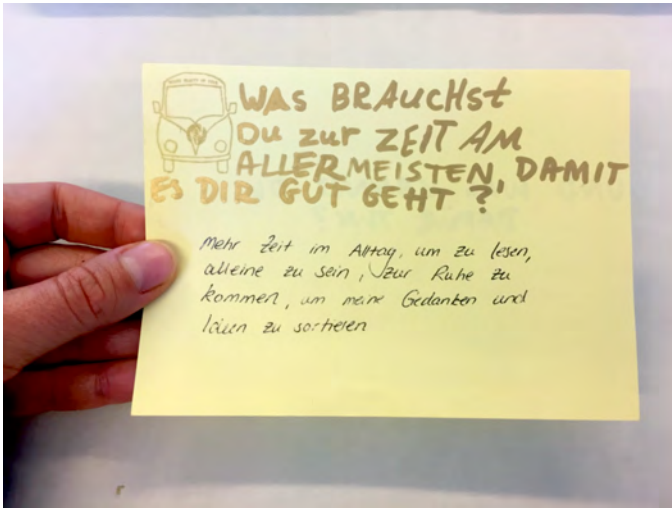 WAS BRAUCHST
DU zur ZEIT AM
ALLERMEISTEN, DAMIT
ES DIR GUT GEHT?
Mehr Zeit im Alltag, um zu lesen,
alleine zu sein, zur Ruhe zu
kommen, um meine Gedanken und
Ideen zu sortieren